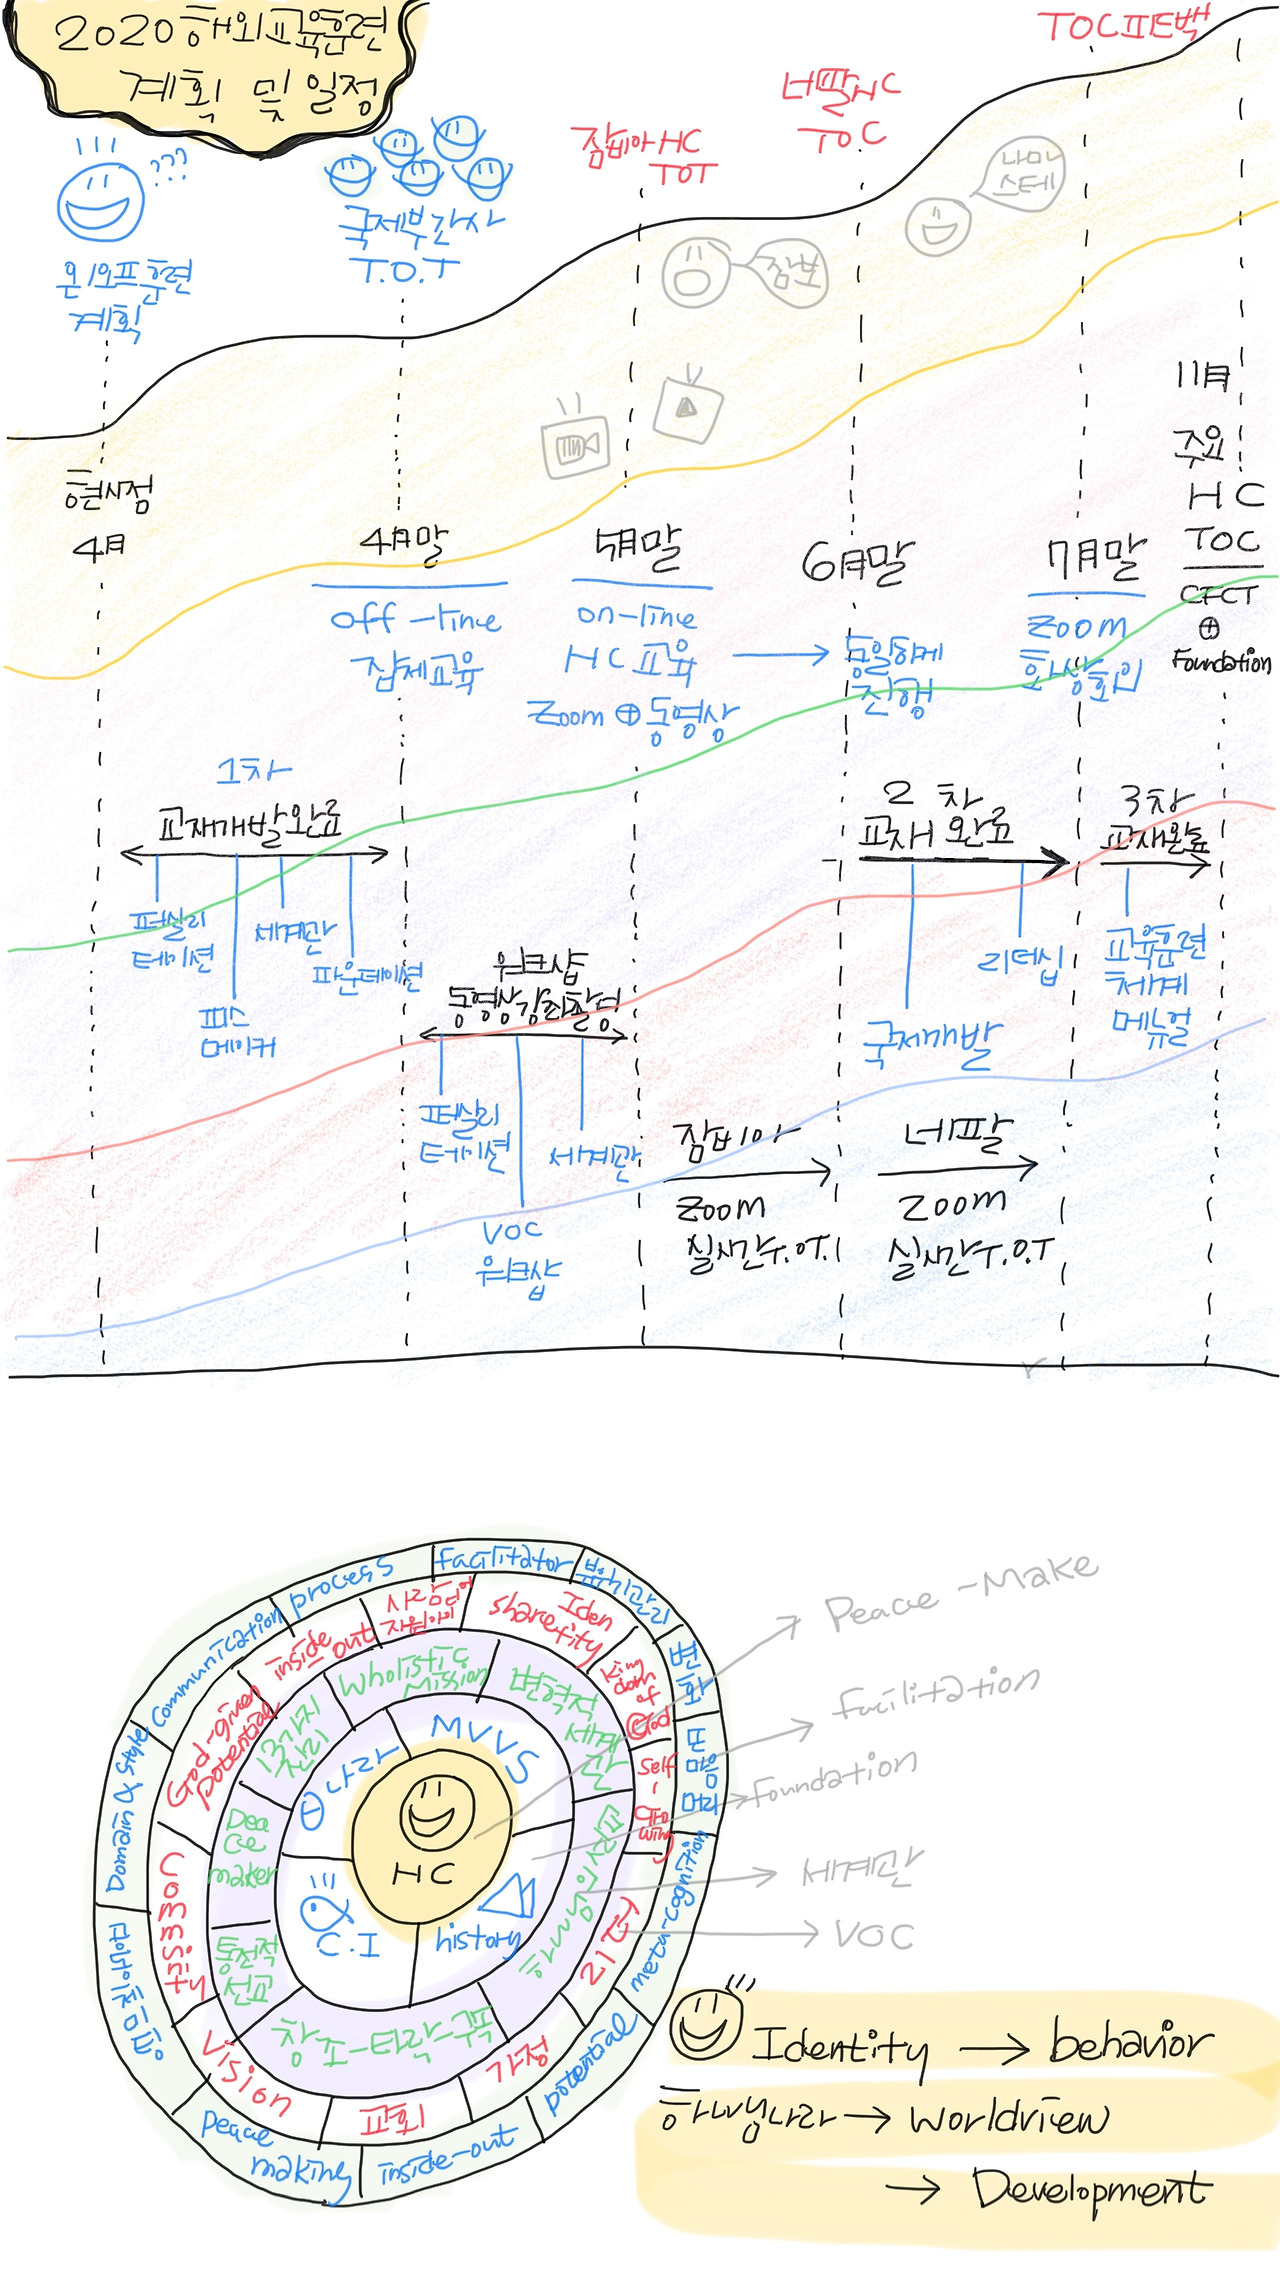 2020 해외교육훈련
계획 및 일정
TOC피드백
네팔HC
TOC
잠비아 HC
TOT
???
국제부간사
T.O.T
온/오프훈련
계획
나마
스테
잠보
11月
주요
HC
TOC
CFCT
⊕
Foundation
현시점
4月
4月말
5月말
6月말
7月말
off-line
잡체교육
on-line
HC 교육
Zoom ⊕ 동영상
동일하게
진행
Zoom
화상회의
1차
교재개발완료
퍼실리
테이션
피스
메이커
세계관
파운데이션
워크샵
동영상강의촬영
퍼실리
테이션
VOC
워크샵
세계관
2차
교재 완료
국제개발
리더십
3차
교재완료
교육훈련
체계
메뉴얼
잠비아
Zoom
실시간T.O.T
네팔
Zoom
실시간T.O.T
process
facilitator
변화
돈
마음
머리
meta-cognition
potential
inside-out
peace
making
Domain & Style
Communication
inside
out
사람
자원
share
Iden
tity
kingdom of
God
Self-
Growing
가정
교회
Vision
God-given
potential
Wholistic
Mission
변혁적
세계관
창조-타락-구속
총전적
선교
Peace
maker
13가지
진리
MVVS
나라
history
C.I
HC
Peace-Make
Facilitation
Foundation
세계관
VOC
Identity → behavior
하나님나라 → worldview
→ Development